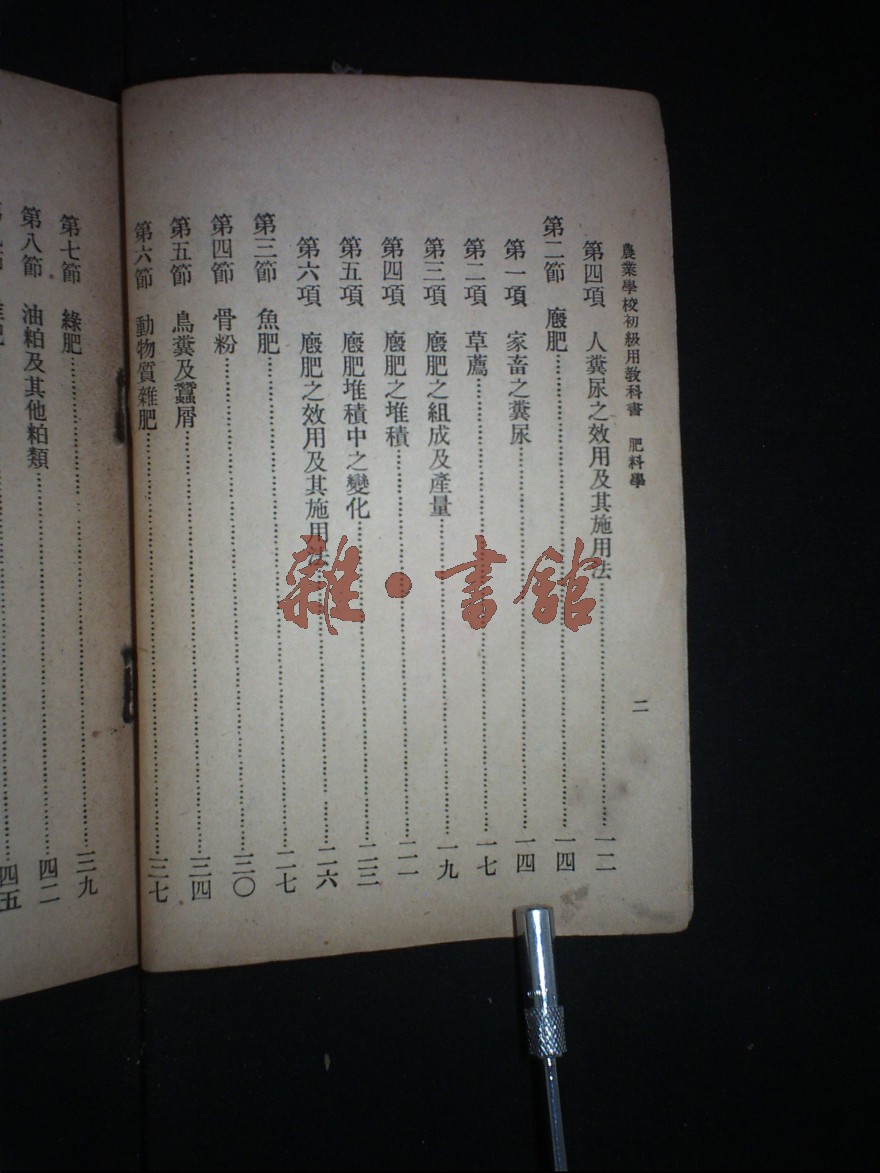 農業學校初級用教科書 肥料學 二
第四項 人糞尿之效用及其施用法 一二
第二節 廐肥 一四
第一項 家畜之糞尿 一四
第二項 草薦 一七
第三項 廐肥之組成及產量 一九
第四項 廐肥之堆積 二二
第五項 廐肥堆積中之變化 二三
第六項 廐肥之效用及其施用法 二六
第三節 魚肥 二七
第四節 骨粉 三〇
第五節 鳥糞及蠶屑 三四
第六節 動物質雜肥 三七
第七節 綠肥 三九
第八節 油粕及其他粕類 四二
四五
雜·書館